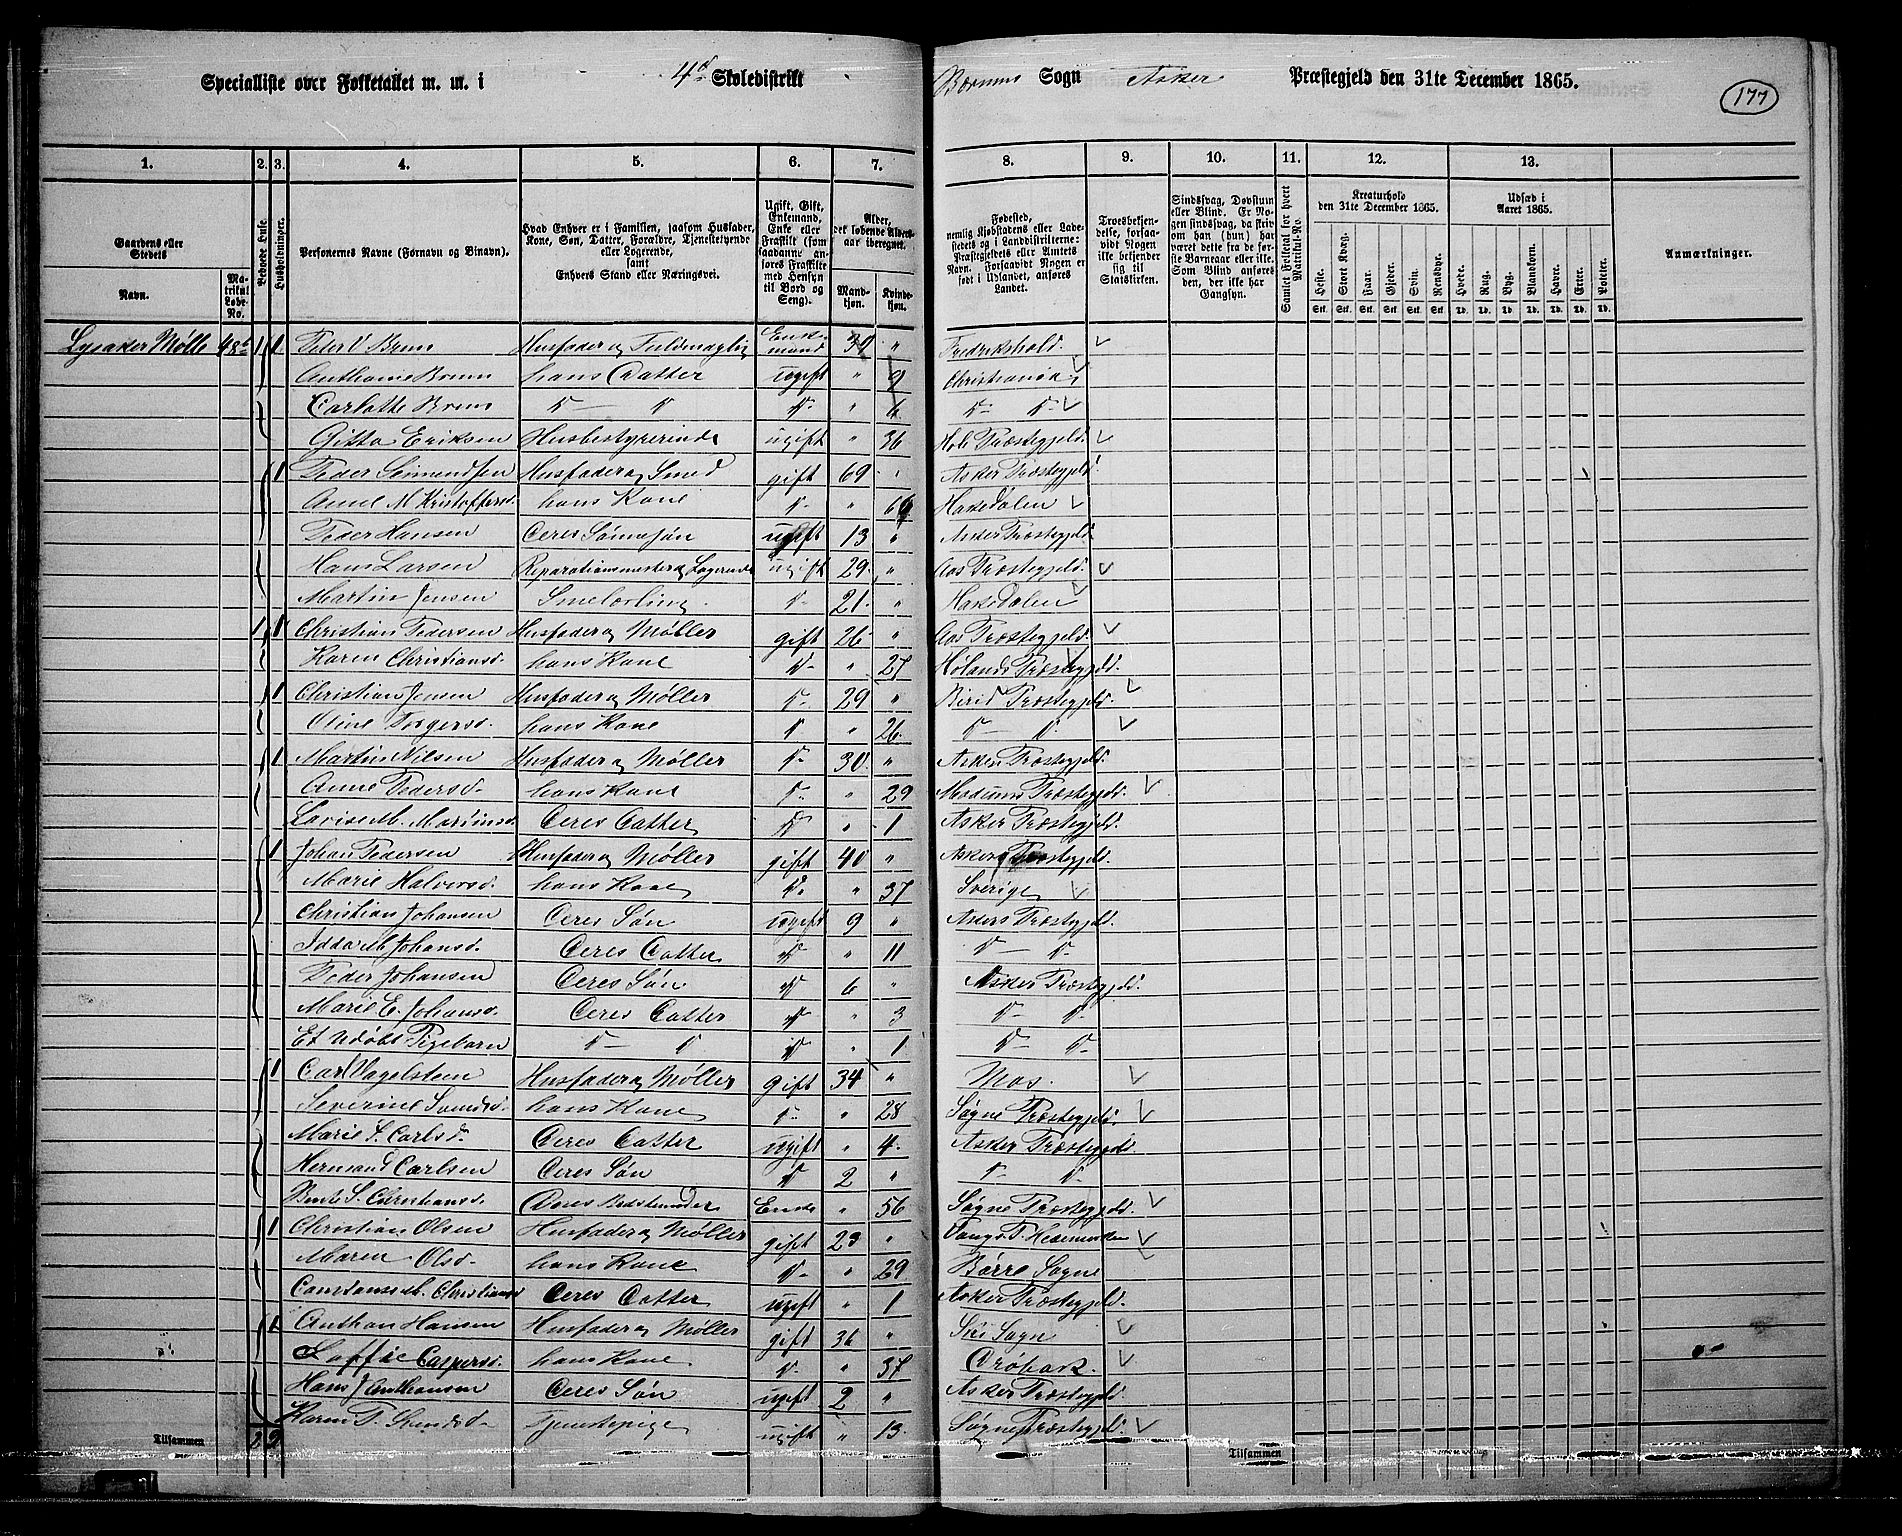 Specialliste over Folketallet m. m. i 4de Skoledistrikt Bærums Sogn Asker Præstegjeld den 31te December 1865.
177
1. 2. 3. 4. 5. 6. 7. 8. 9. 10. 11. 12. 13.
Gaardens eller Stedets Navn. Matrikul Løbe-No. Beboede Huse. Husholdninger. Personernes Navne (Fornavn og Binavn). Hvad Enhver er i Familien, saasom Husfader, Kone, Søn, Datter, Forældre, Tjenestetyende eller Logerende, samt Enhvers Stand eller Næringsvei. Ugift, Gift, Enkemand, Enke eller Fraskilt (som saadanne anføres Fraskilte med Hensyn til Bord og Seng). Alder, det løbende Aldersaar iberegnet. Mandkjøn. Kvindekjøn. Fødested, nemlig Kjøbstadens eller Ladestedets og i Landdistrikterne: Præstegjeldets eller Amtets Navn. Forsaavidt Nogen er født i Udlandet, anføres Landet. Troesbekjendelse, forsaavidt Nogen ikke bekjender sig til Statskirken. Sindssvag, Døvstum eller Blind. Er Nogen sindssvag, da skriv om han (hun) har været dette fra de første Barneaar eller ikke. Som Blind anføres den, der ikke har Gangsyn. Samlet Folketal for hvert Matrikul-No. Kreaturhold den 31te December 1865. Heste. Stort Kvæg. Faar. Gjeder. Svin. Rensdyr. Udsæd i Aaret 1865. Hvede. Rug. Byg. Blandkorn. Havre. Erter. Poteter. Anmærkninger.
Stk. Stk. Stk. Stk. Stk. Stk. Td. Td. Td. Td. Td. Td. Td.
Lysaker Mølle 48b 1 1 Peter V Bruun Husfader og Fuldmægtig Enkemand " Fredrikshald
Anthonie Bruun hans Datter ugift " 9 Christiania
Carlotte Bruun D D D " 6 D D
Gitta Eriksen Husbestyrerinde ugift " 36 Hole Præstegjeld.
1 Peder Simensen Husfader og Smed gift 69 " Asker Præstegjeld
Anne M Kristoffersd. hans Kone D " Hakedalen
Peder Hansen Deres Sønnesøn ugift 13 " Asker Præstegjeld.
Hans Larsen Reparationsmester og Logerende ugift 29 " Aas Præstegjeld.
Martin Jensen Smelærling D 21 " Hakedalen
1 1 Christian Pedersen Husfader og Møller gift 26 " Aas Præstegjeld.
Karen Christiansd. hans Kone D " 27 Hølands Præstegjeld.
1 Christian Jensen Husfader og Møller D 29 " Birid Præstegjeld.
Oline Torgersd. hans Kone D " 26 D D
1 Martin Nilsen Husfader og Møller D 30 " Asker Præstegjeld.
Anne Pedersd. hans Kone D " 29 Modums Præstegjeld.
Lovise M. Martinsd. Deres Datter D " 1 Asker Præstegjeld.
1 Johan Pedersen Husfader og Møller gift 40 " Asker Præstegjeld.
Marie Halvorsd. hans Kone D " 37 Sverige
Christian Johansen Deres Søn ugift 9 " Askers Præstegjeld.
Idda M. Johansd. Deres Datter D " 11 D D
Peder Johansen Deres Søn D 6 " Asker Præstegjeld.
Marie E. Johansd. Deres Datter D " 3 D D
Et Udøbt Pigebarn D D D " 1 D D
1 Carl Nagelsteen Husfader og Møller gift 34 " Mos.
Severine Svendsd. hans Kone D " 28 Søgne Præstegjeld.
Marie S. Carlsd. Deres Datter ugift " 4 Asker Præstegjeld.
Hermand Carlsen Deres Søn D 2 " D D
Christiansd. Deres Bedstemoder Enke " 56 Søgne Præstegjeld.
1 Christian Olsen Husfader og Møller gift 23 " Vangs P. Hedemarken
Maren Olsd. hans Kone D " 29 Børre Sogne
Constanse M. Christiansd Deres Datter ugift " 1 Asker Præstegjeld.
1 Anthon Hansen Husfader og Møller gift 36 " Ski Sogn
Soffie Caspersd. hans Kone D " 37 Drøbak.
Hans J Anthonsen Deres Søn ugift 2 " Asker Præstegjeld
Karen T. Svendsd. Tjenestepige ugift " 13 Søgne Præstegjeld.
Tilsammen 2 9 Tilsammen